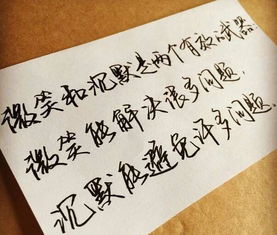 微笑和沉默是两个有效的武器:
微笑能解决很多问题,
沉默能避免许多问题.